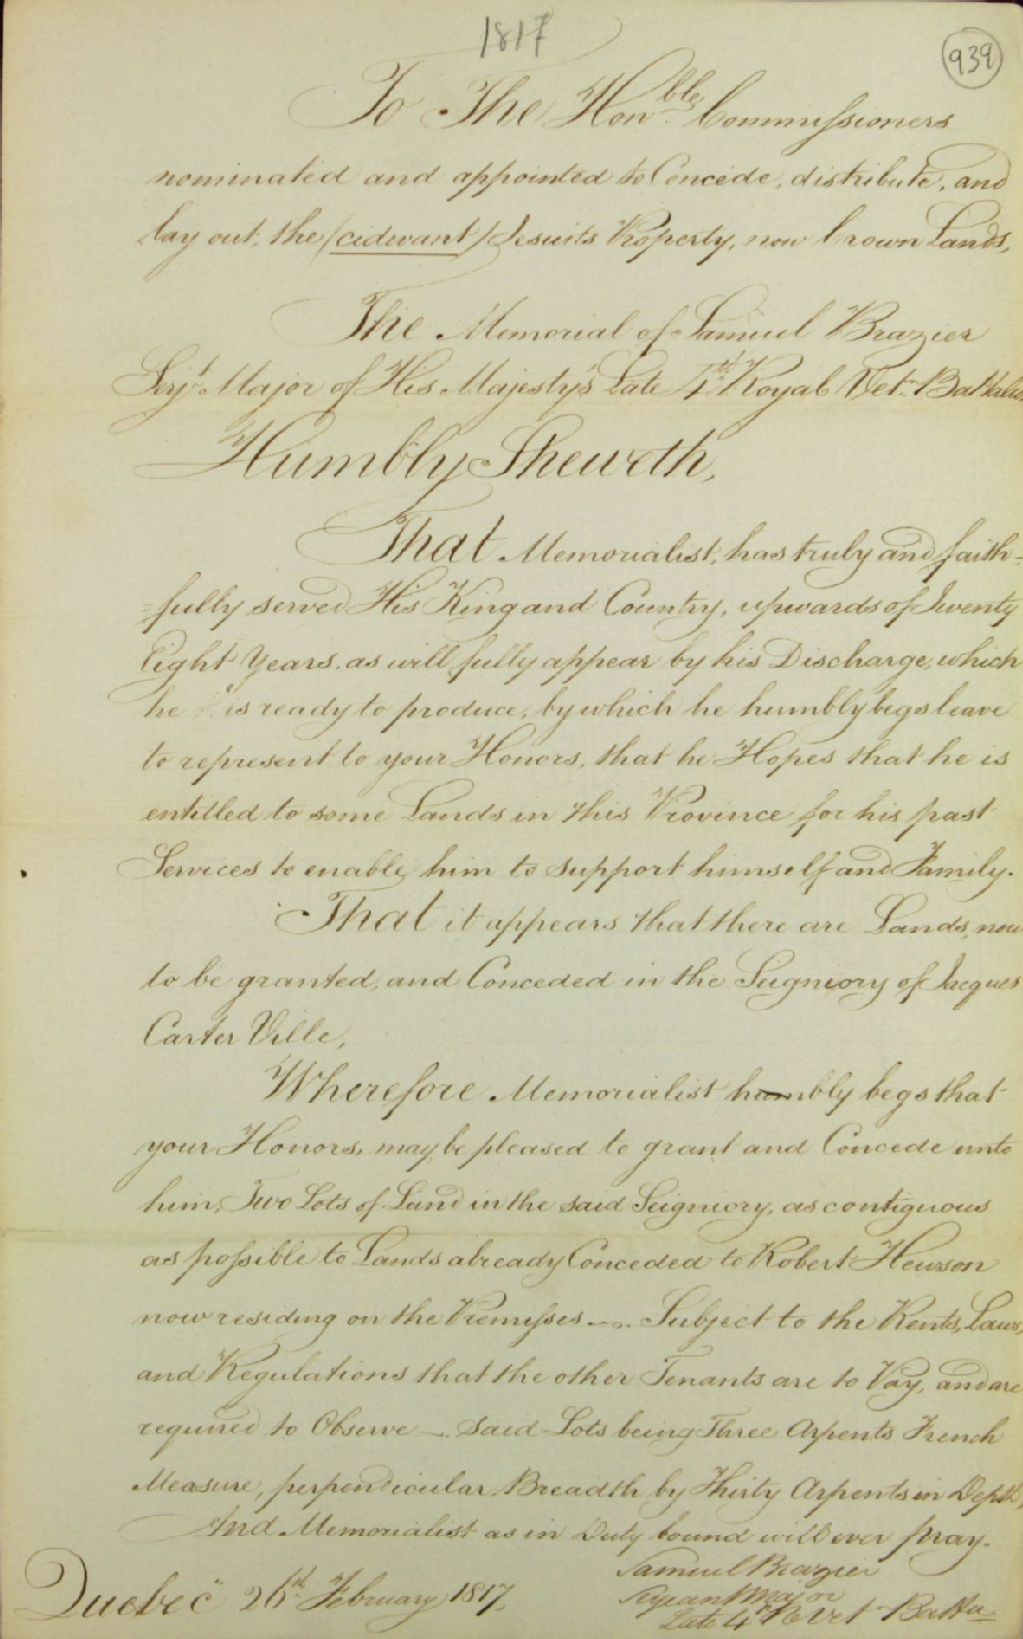 1817
939
To The Honble Commissioners
nominated and appointed to Concede, distribute, and
lay out, the (cidevant) Jesuits Property, now Crown Lands,
The Memorial of Samuel Brazier
Serjt Major of His Majesty's Late 4th Royal Vet. Battalion
Humbly Sheweth,
That Memorialist, has truly and faith=
=fully served His King and Country, upwards of Twenty
Eight Years. as will fully appear by his Discharge, which
he is ready to produce, by which he humbly begs leave
to represent to your Honors, that he Hopes that he is
entitled to some Lands in this Province for his past
Services to enable him to support himself and Family.
That it appears that there are Lands, now
to be granted, and Conceded in the Seigniory of Jacques
Carter Ville,
Wherefore Memorialist humbly begs that
your Honors, may be pleased to grant and Concede unto
him, Two Lots of Land in the said Seigniory, as contiguous
as possible to Lands already Conceded to Robert Hewson
now residing on the Premisses —. Subject to the Rents, Laws,
and Regulations that the other Tenants are to Pay, and are
required to Observe —. Said Lots being Three Arpents French
Measure, perpendicular Breadth by Thirty Arpents in Depth,
And Memorialist as in Duty bound will ever pray.
Samuel Brazier
Quebec 26th February 1817
Serjeant Major
Late 4th R Vet Battn